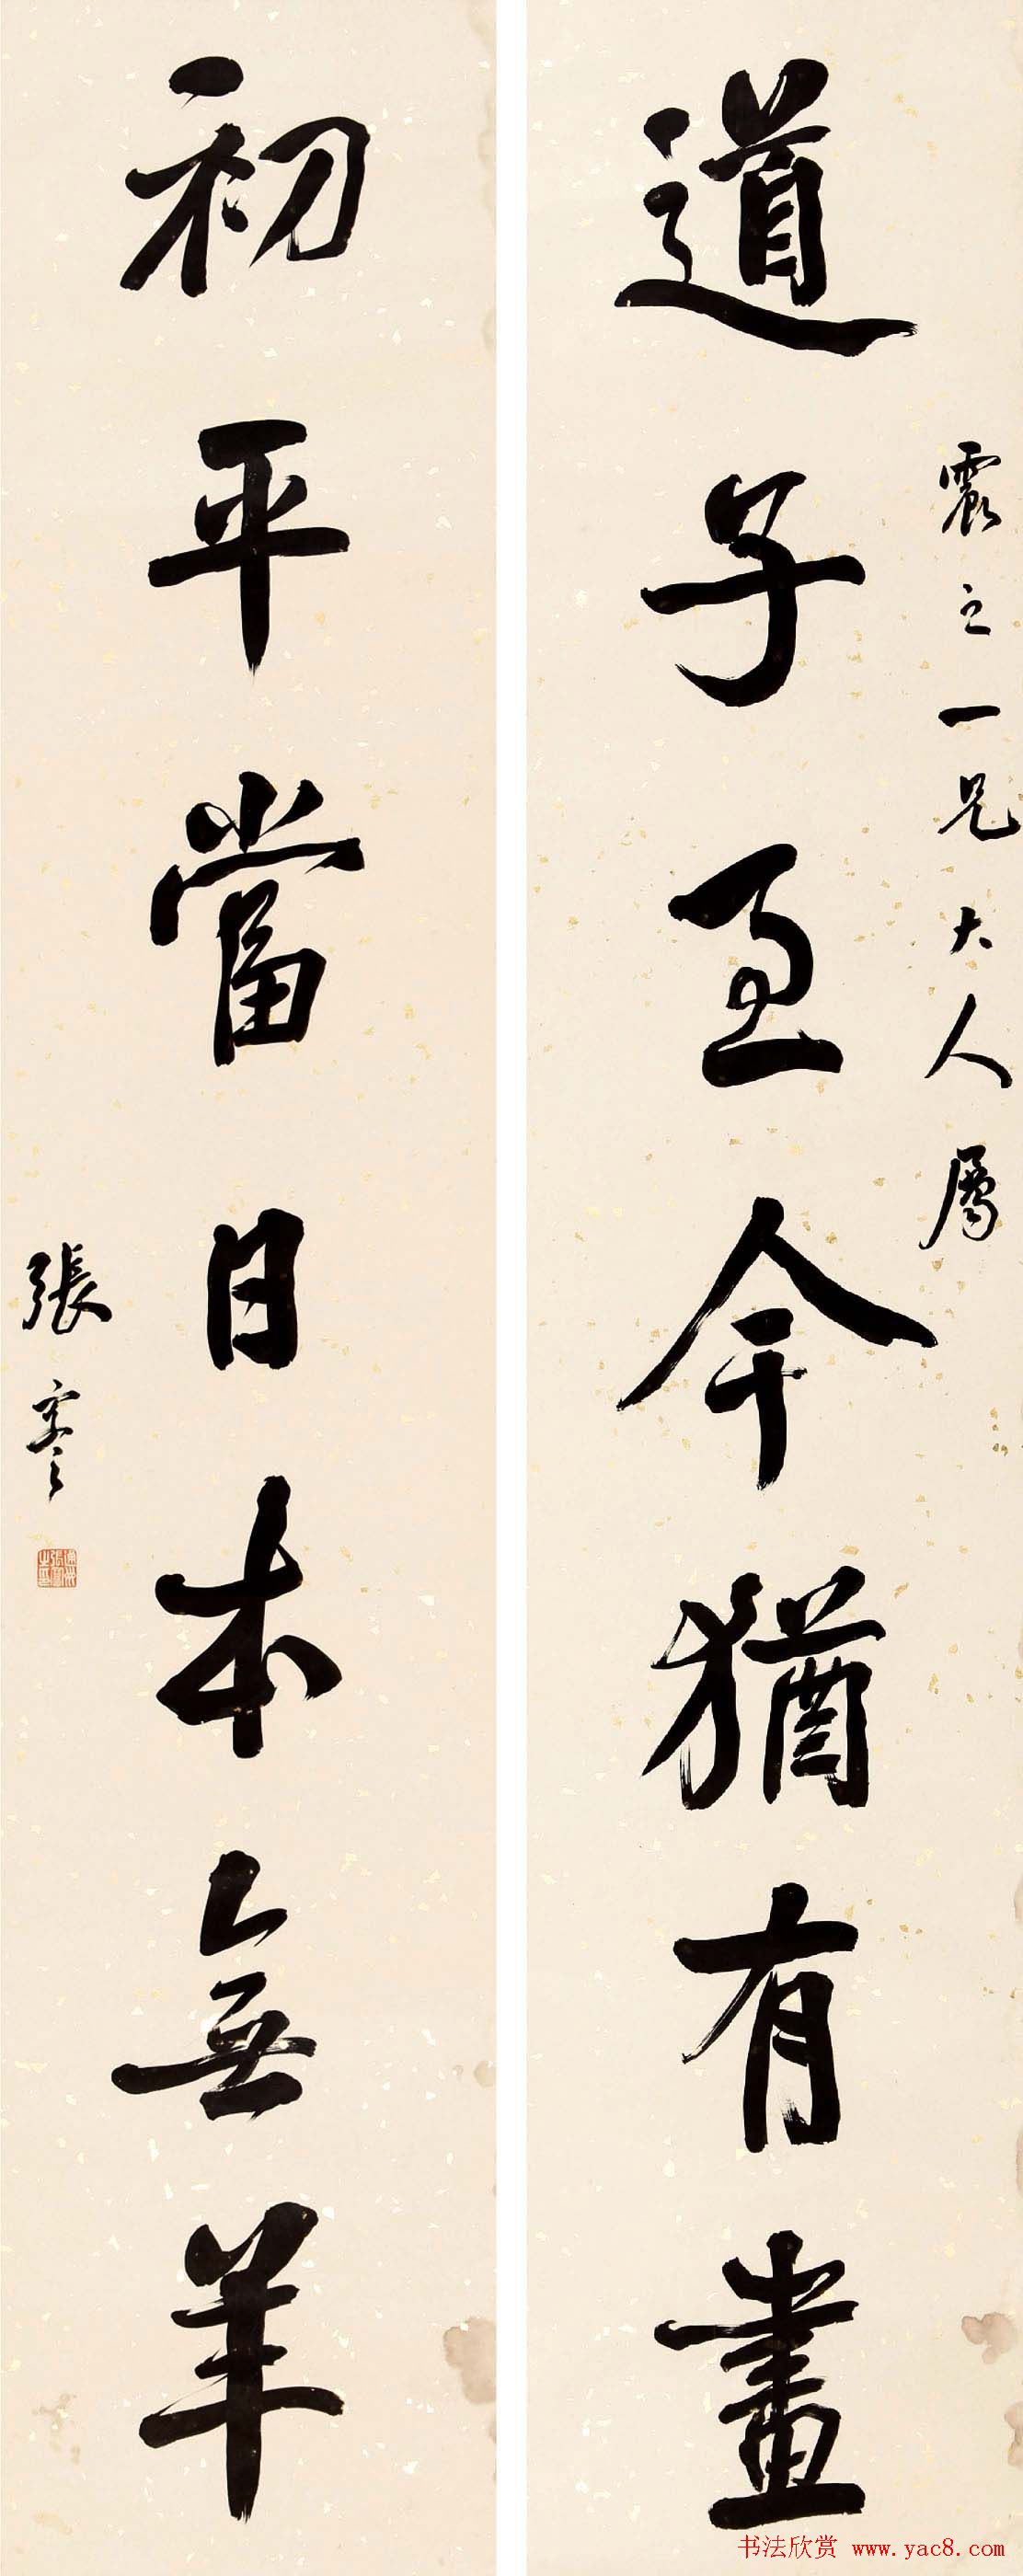 道子至今猶有畫
震之一兄大人屬
初平當日本無羊
張謇
書法欣赏 www.yac8.com